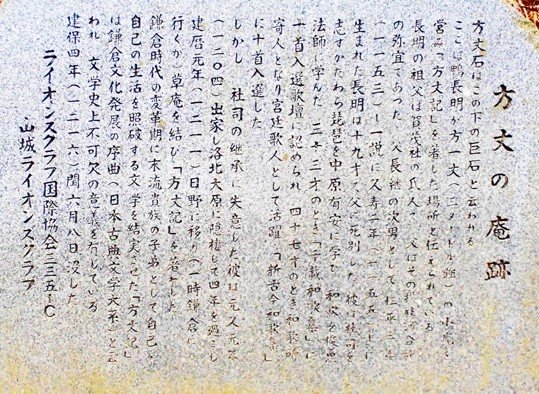 方丈の庵跡
方丈石はこの下の巨石と云われる
ここは鴨長明が方一丈(三メートル強)の小庵を
営み「方丈記」を著した場所と伝えられている
長明の祖父は賀茂社の氏人で 父はその
の弥宜であった 父長継の次男として仁平三年
(一一五三)―説に久寿二年(一一五五)に
生まれた長明は十九才で父に死別した 彼は
志すかたわら琵琶を中原有安に学び 和歌を俊恵
法師に学んだ 三十三才のとき「千載和歌集」に
一首入選歌壇に認められ 四十七才のとき和歌所
寄人となり宮廷歌人として活躍 「新古今和歌集」
に十首入選した
しかし 社司の継承に失意した彼は元久元年
(一二〇四)出家し洛北大原に隠棲して四年を過し
建暦元年(一二一一)日野に移り(一時鎌倉に
行く)が草庵を結び「方丈記」を著した
鎌倉時代の変革期に末流貴族の子弟として自己と
自己の生活を照破する文学を結実させた「方丈記」
は鎌倉文化発展の序曲(日本古典文学大系)と云
われ 文学史上不可欠の意義を有している
建保四年(一二一六)閏六月八日没した
ライオンズクラブ国際協会三三五―C
山城ライオンズクラブ